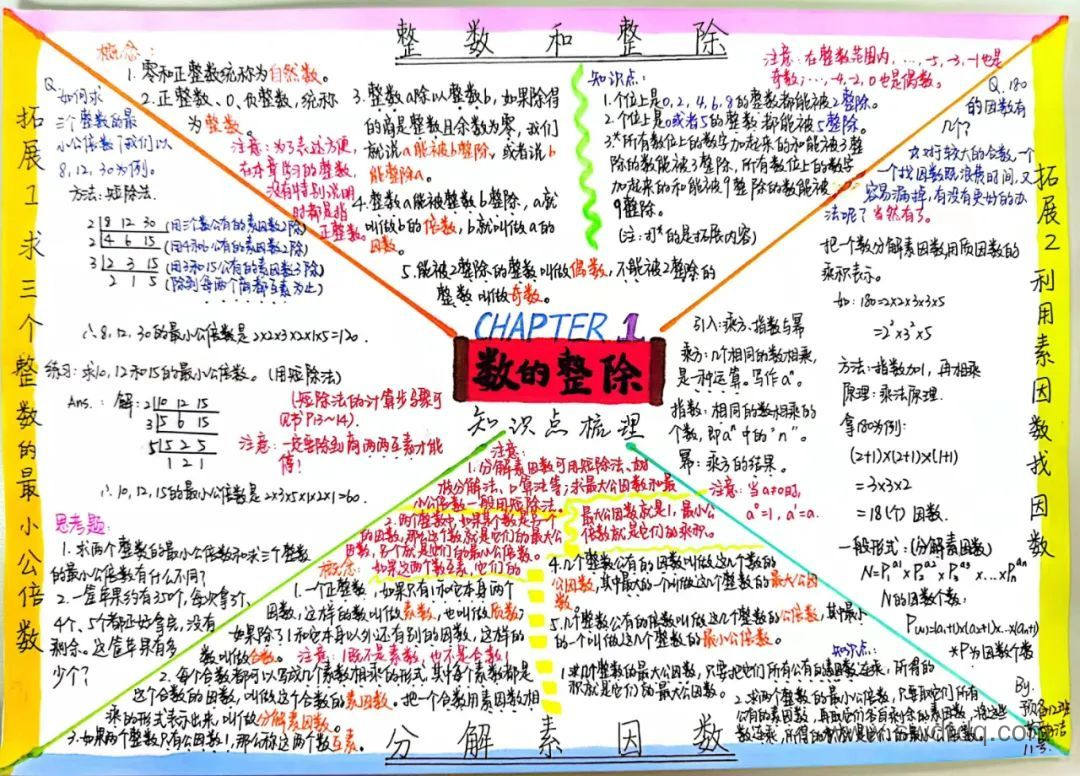 整数和整除
概念：
1. 零和正整数统称为自然数。
2. 正整数、0、负整数，统称
为整数。
注意：为了表达方便，
在本章学习的整数，
没有特别说明
时都是指
正整数。
3. 整数a除以整数b，如果除得
的商是整数且余数为零，我们
就说a能被b整除，或者说b
能整除a。
4. 整数a能被整数b整除，a就
叫做b的倍数，b就叫做a的
因数。
5. 能被2整除的整数叫做偶数，不能被2整除的
整数叫做奇数。
知识点：
1. 个位上是0,2,4,6,8的整数都能被2整除。
2. 个位上是0或者5的整数都能被5整除。
3.*所有数位上的数字加起来的和能被3整
除的数能被3整除，所有数位上的数字
加起来的和能被9整除的数能被
9整除。
(注：打*的是拓展内容)
注意：在整数范围内，…，-5，-3，-1也是
奇数；…，-4，-2，0也是偶数。
拓展1 求三个整数的最小公倍数
Q. 如何求
三个整数的最
小公倍数？我们以
8，12，30为例。
方法：短除法。
2 8 12 30 (用三个数公有的素因数2除)
2 4 6 15 (用4和6公有的素因数2除)
3 2 3 15 (用3和15公有的素因数3除)
2 1 5 (除到每两个商都互素为止)
∴8，12，30的最小公倍数是2×2×3×2×1×5=120.
练习：求10，12和15的最小公倍数。(用短除法)
Ans.：解：2 10 12 15
3 5 6 15
5 5 2 5
1 2 1
(短除法的计算步骤可
见书P13~14)
注意：一定要除到商两两互素才能
停！
∴10，12，15的最小公倍数是2×3×5×1×2×1=60.
思考题：
1. 求两个整数的最小公倍数和求三个整数
的最小公倍数有什么不同？
2. 一筐苹果约有250个，每次拿3个、
4个、5个都正好拿完，没有
剩余。这筐苹果有多
少个？
CHAPTER 1
数的整除
知识点梳理
引入：乘方、指数与幂
乘方：几个相同的数相乘，
是一种运算。写作aⁿ。
指数：相同的数相乘的
个数，即aⁿ中的“n”。
幂：乘方的结果。
注意：当a≠0时，
a⁰=1，a¹=a.
拓展2 利用素因数找因数
Q. 180
的因数有
几个？
对于较大的合数，一个
一个找因数既浪费时间，又
容易漏掉，有没有更好的办
法呢？当然有了。
把一个数分解素因数用质因数的
乘积表示。
如：180=2×2×3×3×5
=2²×3²×5
方法：指数加1，再相乘
原理：乘法原理.
拿180为例：
(2+1)×(2+1)×(1+1)
=3×3×2
=18(个)因数.
一般形式：(分解素因数)
N=P₁ᵃ¹×P₂ᵃ²×P₃ᵃ³×…×Pₙᵃⁿ
N的因数个数：
P(N)=(a₁+1)×(a₂+1)×…×(aₙ+1)
*P为因数个数
注意：
1. 分解素因数可用短除法、树
枝分解法、口算法等；求最大公因数和最
小公倍数一般用短除法。
2. 两个整数中，如果某个数是另一个
的因数，那么这个数就是它们的最大公
因数，另个就是它们的最小公倍数。
如果这两个数互素，它们的
最大公因数就是1，最小公
倍数就是它们的乘积。
概念：
1. 一个正整数，如果只有1和它本身两个
因数，这样的数叫做素数，也叫做质数；
如果除了1和它本身以外还有别的因数，这样的
数叫做合数。注意：1既不是素数，也不是合数！
2. 每个合数都可以写成几个素数相乘的形式，其中每个素数都是
这个合数的因数，叫做这个合数的素因数。把一个合数用素因数相
乘的形式表示出来，叫做分解素因数。
3. 如果两个整数只有公因数1，那么称这两个数互素。
4. 几个整数公有的因数叫做这几个整数的
公因数，其中最大的一个叫做这个整数的最大公因
数。
5. 几个整数公有的倍数叫做这几个整数的公倍数，其中最小
的一个叫做这几个整数的最小公倍数。
知识点：
1. 求几个整数的最大公因数，只要把它们所有公有的素因数连乘，所得的
积就是它们的最大公因数。
2. 求两个整数的最小公倍数，只要取它们所有
公有的素因数，再取它们各自剩余的素因数，将这些
数连乘，所得的积就是它们的最小公倍数。
分解素因数
By.
预备12班
11号